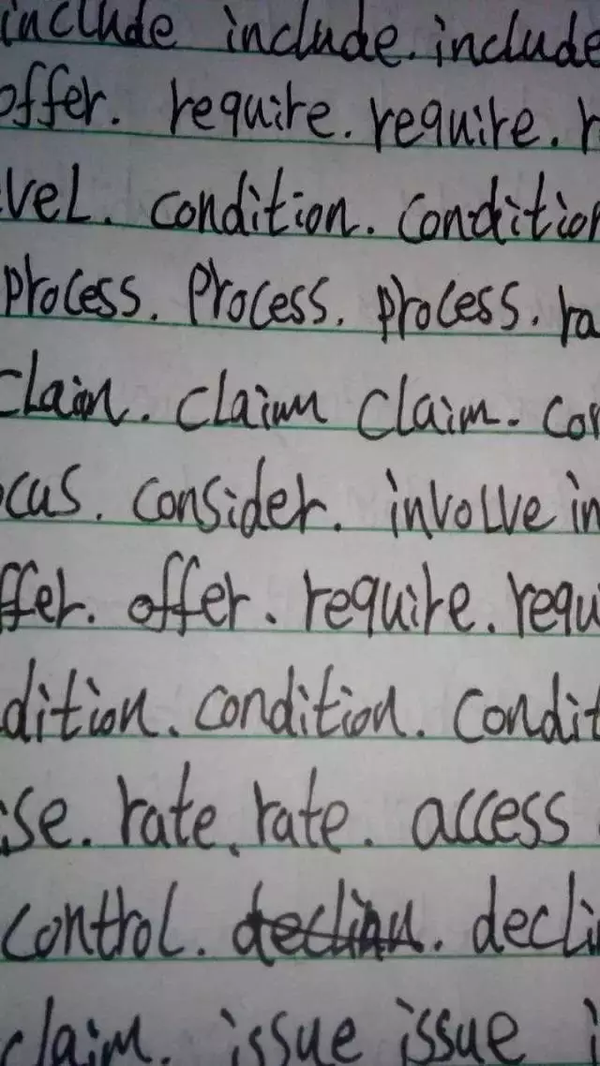 include include. include
offer. require. require. r
vel. condition. condition
process. process. process. ra
claim. claim claim. con
ocus. consider. involve in
ffer. offer. require. requi
dition. condition. condit
se. rate. rate. access
control. decli
claim. issue issue i